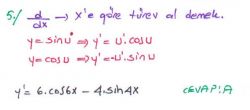 5-) d/dx → x'e göre türev al demek.
y = sin u ⇒ y' = u'. cos u
y = cos u ⇒ y' = -u'. sin u
y' = 6.cos6x - 4.sin4x CEVAP: A